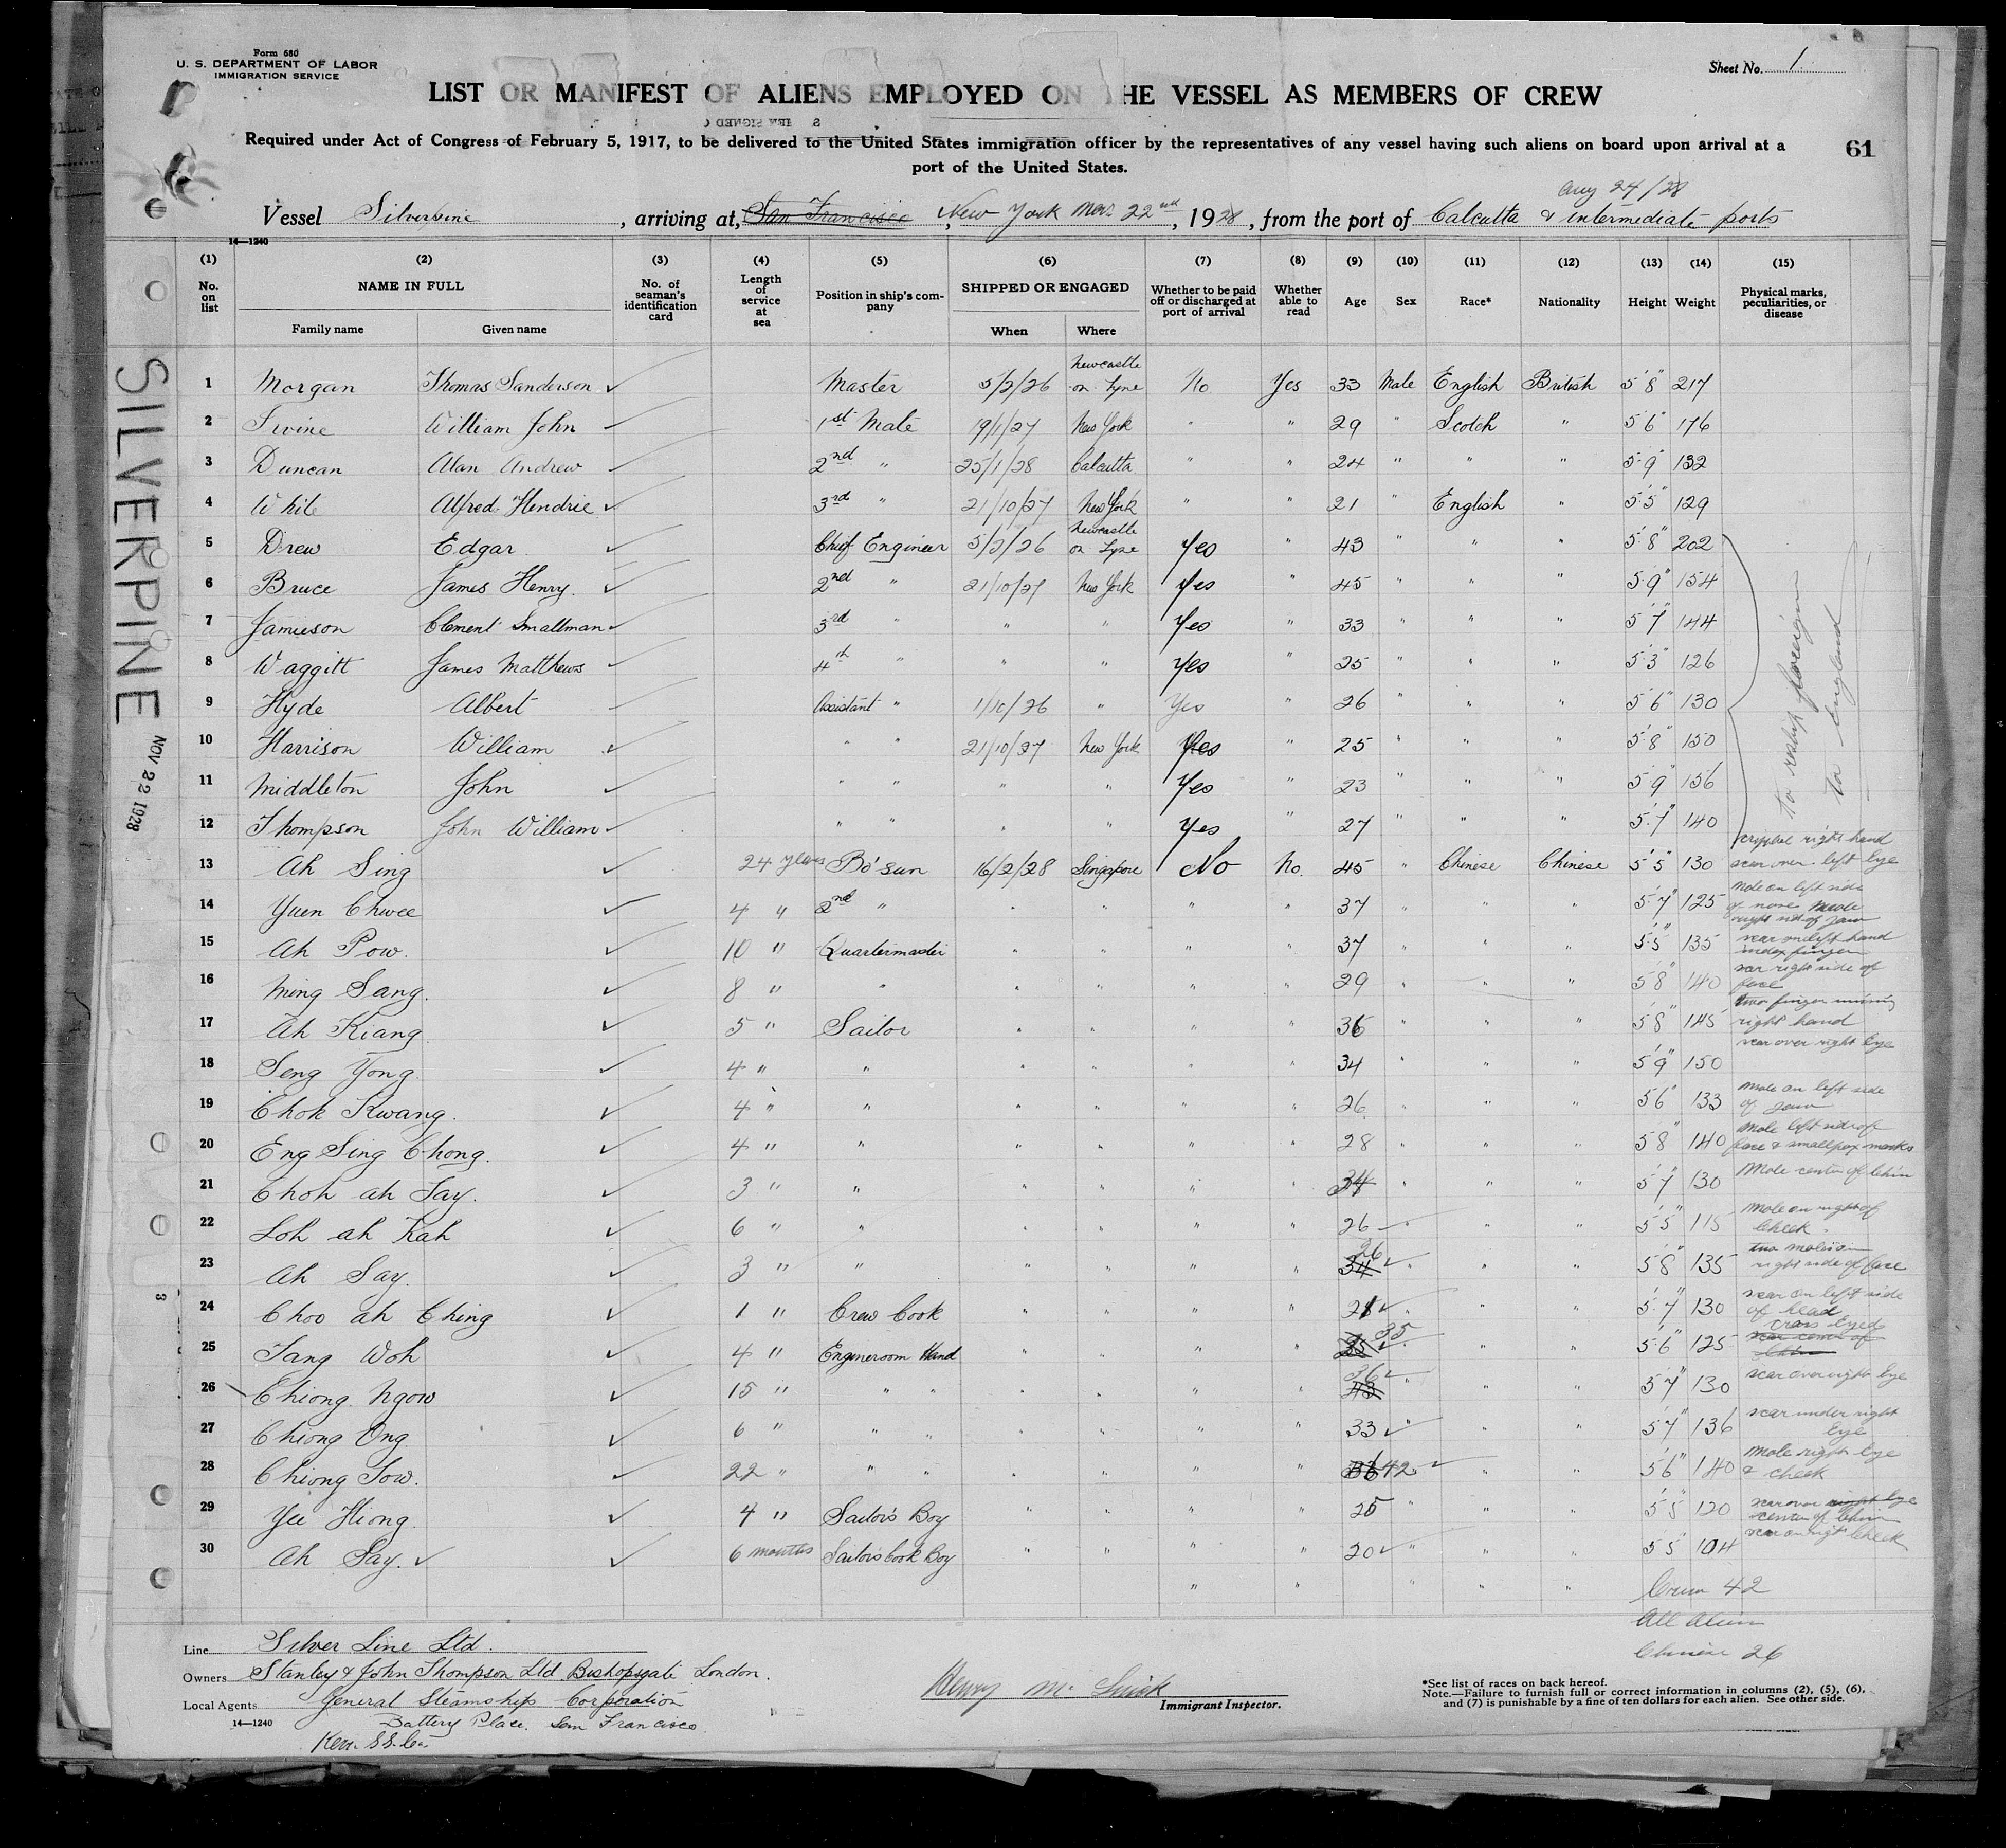 Form 680
U. S. DEPARTMENT OF LABOR
IMMIGRATION SERVICE
Sheet No. 1
LIST OR MANIFEST OF ALIENS EMPLOYED ON THE VESSEL AS MEMBERS OF CREW
Required under Act of Congress of February 5, 1917, to be delivered to the United States immigration officer by the representatives of any vessel having such aliens on board upon arrival at a
port of the United States.
61
Aug 24/28
Vessel Silverpine, arriving at, San Francisco, New York Nov. 22nd, 1928, from the port of Calcutta & intermediate ports
14—1240
(1) (2) (3) (4) (5) (6) (7) (8) (9) (10) (11) (12) (13) (14) (15)
No. on list NAME IN FULL Family name Given name No. of seaman's identification card Length of service at sea Position in ship's company SHIPPED OR ENGAGED When Where Whether to be paid off or discharged at port of arrival Whether able to read Age Sex Race* Nationality Height Weight Physical marks, peculiarities, or disease
1 Morgan Thomas Sanderson Master 5/2/26 Newcastle on Tyne No Yes 33 Male English British 5'8" 217
2 Irvine William John 1st Mate 19/1/27 New York " " 29 " Scotch " 5'6" 176
3 Duncan Alan Andrew 2nd " 25/1/28 Calcutta " " 24 " " " 5'9" 132
4 White Alfred Hendrie 3rd " 21/10/27 New York " " 21 " English " 5'5" 129
5 Drew Edgar Chief Engineer 5/2/26 Newcastle on Tyne Yes " 43 " " " 5'8" 202
6 Bruce James Henry 2nd " 21/10/27 New York Yes " 45 " " " 5'9" 154
7 Jamieson Clement Smallman 3rd " " " Yes " 33 " " " 5'7" 144
8 Waggitt James Matthews 4th " " " Yes " 25 " " " 5'3" 126
9 Hyde Albert Assistant " 1/10/26 " Yes " 26 " " " 5'6" 130
10 Harrison William " " 21/10/27 New York Yes " 25 " " " 5'8" 150
11 Middleton John " " " " Yes " 23 " " " 5'9" 156
12 Thompson John William " " " " Yes " 27 " " " 5'7" 140
to reship foreign
to England
13 Ah Sing 24 years Bo'sun 16/2/28 Singapore No No. 45 " Chinese Chinese 5'5" 130 crippled right hand scar over left Eye
14 Yuen Chwee 4 " 2nd " " " " " 37 " " " 5'7" 125 Mole on left side of nose Mole right side of jaw
15 Ah Pow. 10 " Quartermaster " " " " 37 " " " 5'5" 135 scar on left hand index finger
16 Ming Sang. 8 " " " " " " 29 " " " 5'8" 140 scar right side of face
17 Ah Kiang 5 " Sailor " " " " 36 " " " 5'8" 145 two finger missing right hand
18 Seng Yong. 4 " " " " " " 34 " " " 5'9" 150 scar over right Eye
19 Chok Kwang. 4 " " " " " " 26 " " " 5'6" 133 Mole on left side of jaw
20 Eng Sing Chong. 4 " " " " " " 28 " " " 5'8" 140 Mole left side of face & smallpox marks
21 Choh ah Tay. 3 " " " " " " 34 " " " 5'7" 130 Mole center of Chin
22 Loh ah Kah 6 " " " " " " 26 " " " 5'5" 115 Mole on right of Cheek
23 Ah Say. 3 " " " " " " 34 26 " " " 5'8" 135 two moles on right side of face
24 Choo ah Ching 1 " Crew Cook " " " " 28 " " " 5'7" 130 scar on left side of head
25 Tang Woh 4 " Engineroom Hand " " " " 35 " " " 5'6" 125 Cross Eyed scar center of Chin
26 Chiong Ngow 15 " " " " " " " 43 36 " " " 5'7" 130 scar over right Eye
27 Chiong Ong 6 " " " " " " " 33 " " " 5'7" 136 scar under right Eye
28 Chiong Sow. 22 " " " " " " " 36 42 " " " 5'6" 140 Mole right Eye & cheek
29 Yee Hiong 4 " Sailor's Boy " " " " 25 " " " 5'5" 120 scar over right Eye center of Chin
30 Ah Say. 6 months Sailors Cook Boy " " " " 20 " " " 5'5" 104 scar on right Cheek
Crew 42
All Alien
Chinese 26
Line Silver Line Ltd.
Owners Stanley & John Thompson Ltd Bishopsgate London.
Local Agents General Steamship Corporation
14—1240
Battery Place. San Francisco.
Kerr S.S. Co.
Immigrant Inspector.
*See list of races on back hereof.
Note.—Failure to furnish full or correct information in columns (2), (5), (6), and (7) is punishable by a fine of ten dollars for each alien. See other side.
SILVERPINE
NOV 22 1928